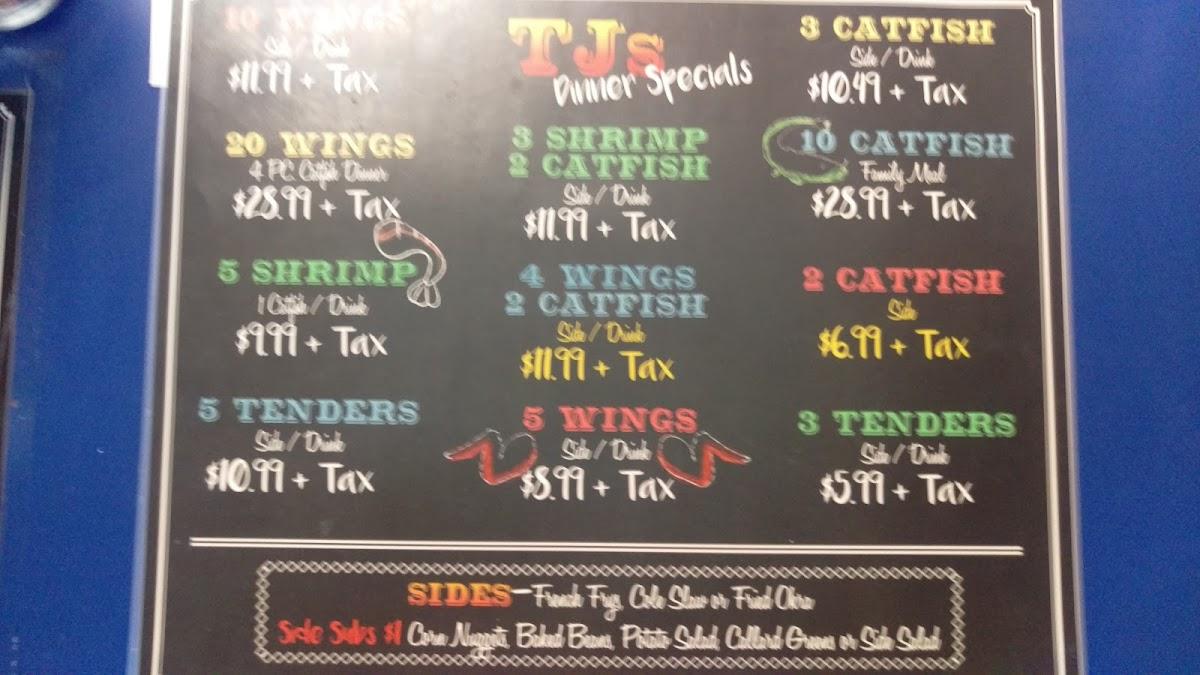 10 WINGS
Side / Drink
$11.99 + Tax
20 WINGS
4 PC. Catfish Dinner
$28.99 + Tax
5 SHRIMP
1 Catfish / Drink
$9.99 + Tax
5 TENDERS
Side / Drink
$10.99 + Tax
TJs
Dinner Specials
3 SHRIMP
2 CATFISH
Side / Drink
$11.99 + Tax
4 WINGS
2 CATFISH
Side / Drink
$11.99 + Tax
5 WINGS
Side / Drink
$8.99 + Tax
3 CATFISH
Side / Drink
$10.49 + Tax
10 CATFISH
Family Meal
$28.99 + Tax
2 CATFISH
Side
$6.99 + Tax
3 TENDERS
Side / Drink
$5.99 + Tax
SIDES—French Frys, Cole Slaw or Fried Okra
Side Subs $1 Corn Nuggets, Baked Beans, Potato Salad, Collard Greens or Side Salad